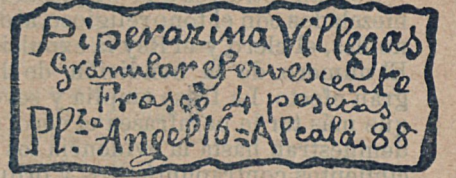 Piperazina Villegas
Granular efervescente
Frasco 4 pesetas
Pl.za Angel 16 = Alcalá. 88